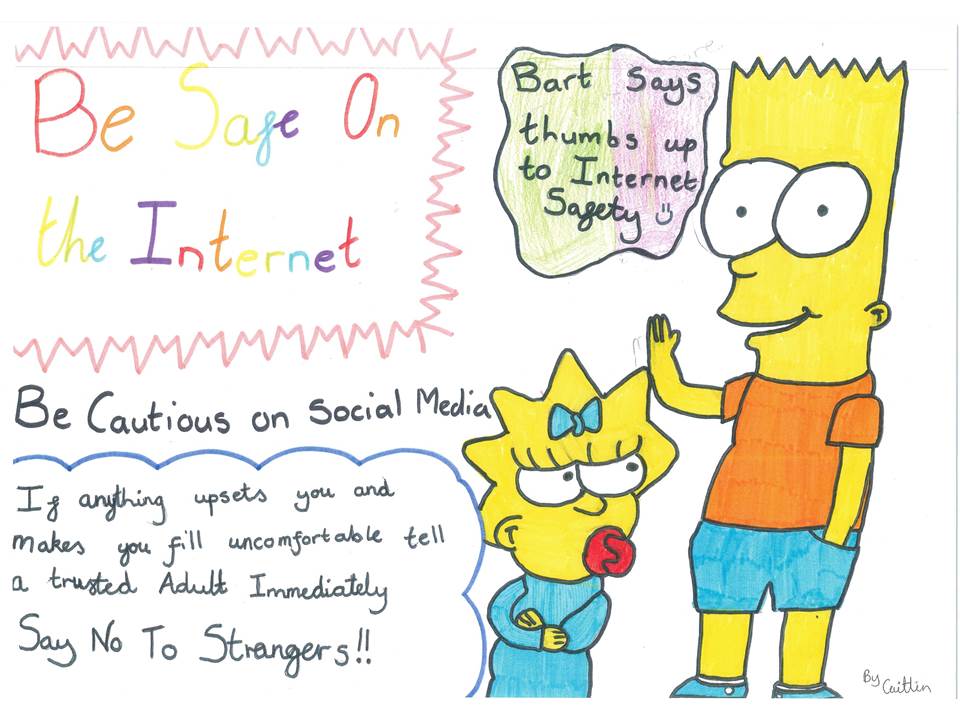 Be Safe On
the Internet
Bart Says
thumbs up
to Internet
Safety
Be Cautious on Social Media
If anything upsets you and
makes you fill uncomfortable tell
a trusted Adult Immediately
Say No To Strangers!!
By
Caitlin